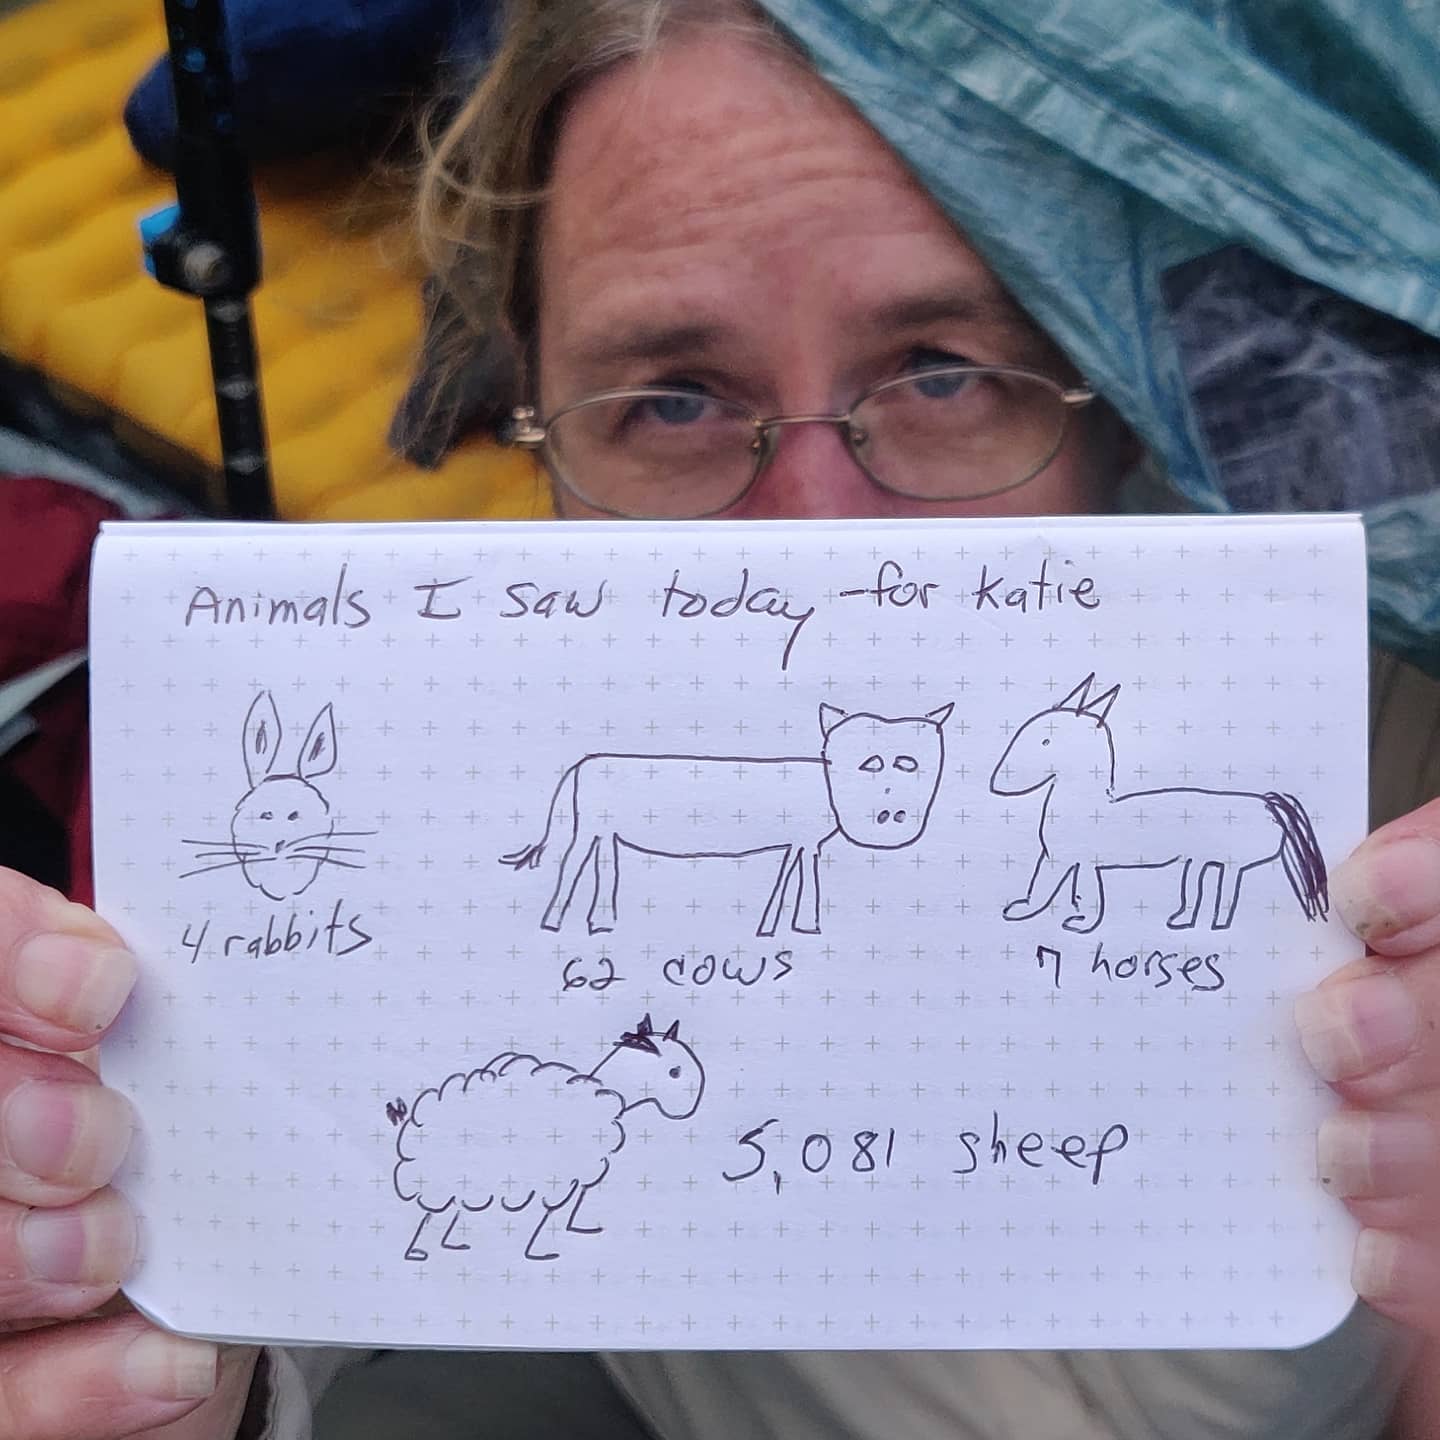 Animals I saw today -for Katie
4 rabbits
62 cows
7 horses
5,081 sheep